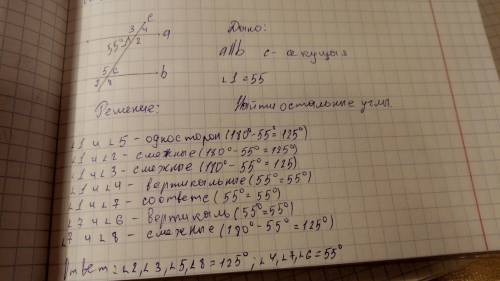 c
3 4 a
55° 1 2
5 6 b
7 8
Дано:
a||b c - секущыя
∠1 = 55
Решение: Найти остальные углы.
∠1 и ∠5 - односторон (180° - 55° = 125°)
∠1 и ∠2 - смежные (180° - 55° = 125°)
∠1 и ∠3 - смежные (180° - 55° = 125)
∠1 и ∠4 - вертикыльные (55° = 55°)
∠1 и ∠7 - соответс (55° = 55°)
∠7 и ∠6 - вертикыль (55° = 55°)
∠7 и ∠8 - смежные (180° - 55° = 125°)
Ответ: ∠2, ∠3, ∠5, ∠8 = 125°; ∠4, ∠7, ∠6 = 55°